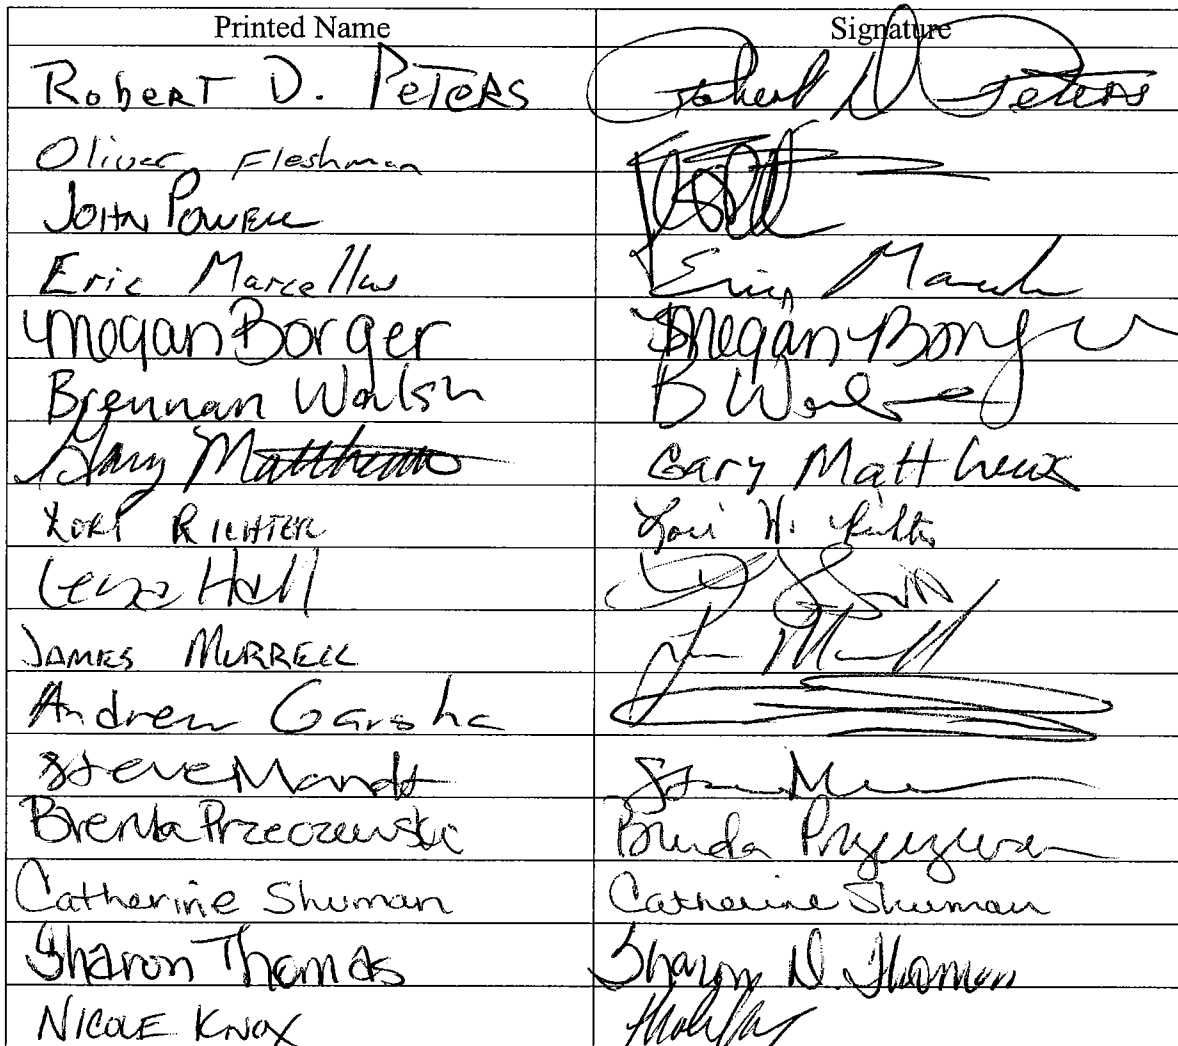 Printed Name Signature
Robert D. Peters Robert D Peters
Oliver Fleshman
John Powell
Eric Marcellus Eric
Megan Borger Megan Borger
Brennan Walsh B Walsh
Gary Matthews Gary Matthews
Lori Richter Lori H. Richter
Hall
James Murrell
Andrew Garsha
Steve Mandt
Brenda Brenda
Catherine Shuman Catherine Shuman
Sharon Thomas Sharon D. Thomas
Nicole Knox